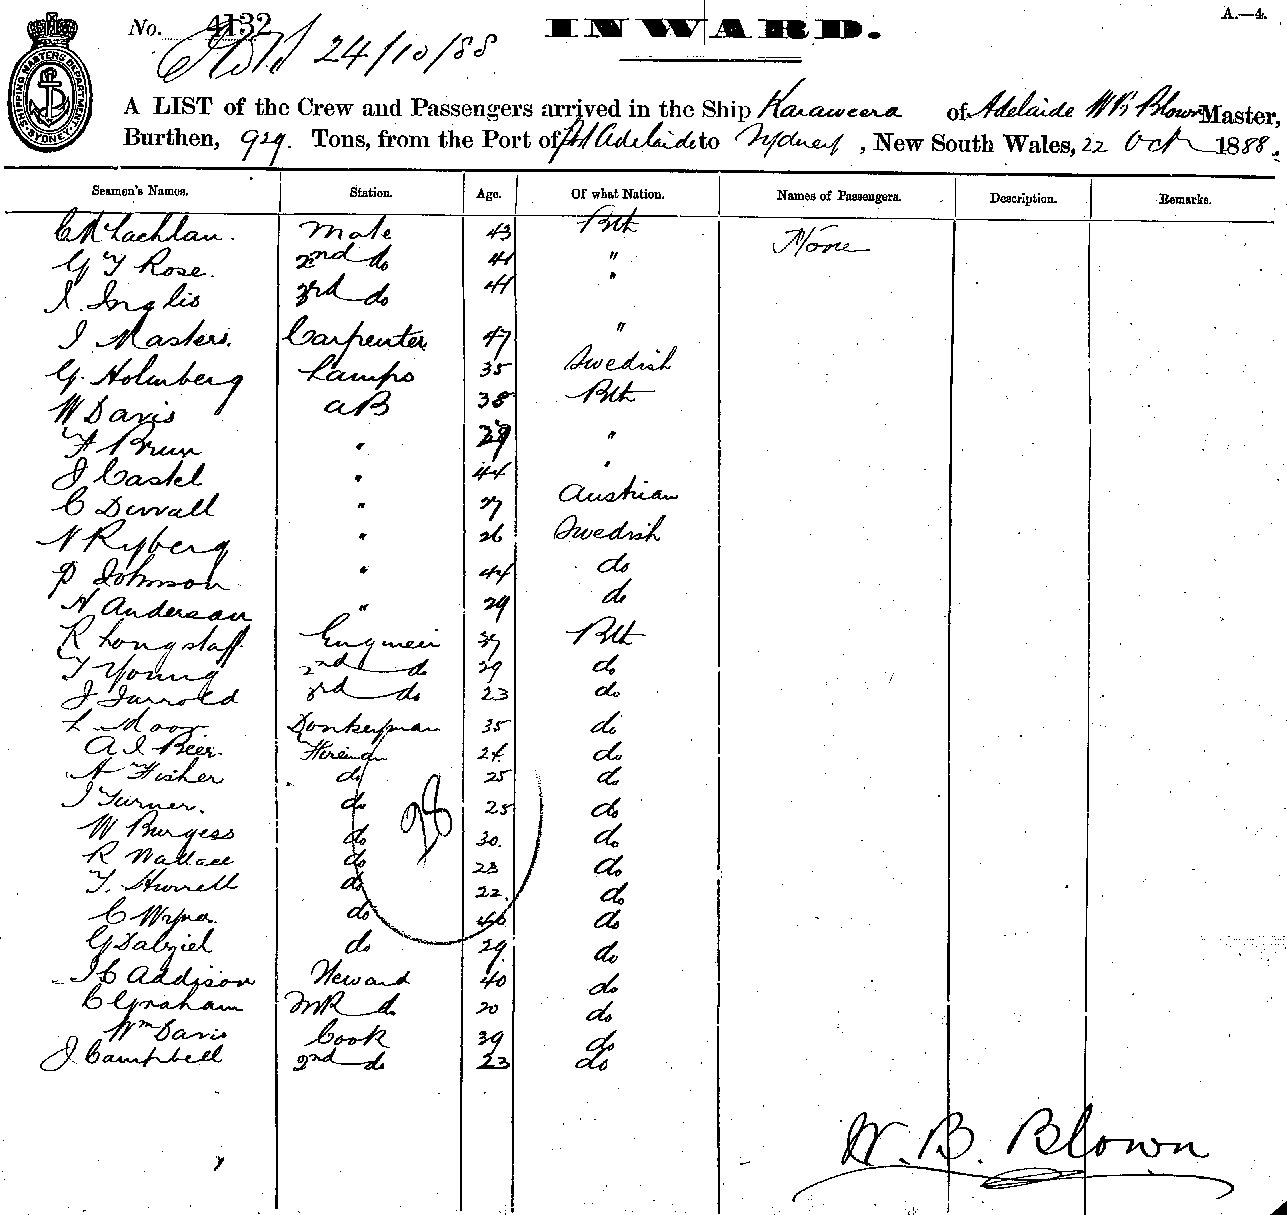 No. 4132
INWARD.
A.—4.
24/10/88
SHIPPING MASTERS DEPARTMENT SYDNEY
A LIST of the Crew and Passengers arrived in the Ship Karaweera of Adelaide W B Blown Master,
Burthen, 929. Tons, from the Port of Pt Adelaide to Sydney, New South Wales, 22 Oct 1888.
Seamen's Names. Station. Age. Of what Nation. Names of Passengers. Description. Remarks.
C McLachlan. Mate 43 Brth None
G T Rose. 2nd do 41 "
J. Inglis 3rd do 41 "
J Masters. Carpenter 47 "
G. Holmberg Lamps 35 Swedish
W Davis AB 38 Brth
F Brun " 29 "
J Castel " 44 "
C Duvall " 27 Austrian
N Ryberg " 26 Swedish
P Johnson " 44 do
A Anderson " 29 do
R Longstaff Engineir 37 Brth
T Young 2nd do 29 do
J Jarrold 3rd do 23 do
L Moor Donkeyman 35 do
A J Beer. Fireman 24 do
A Fisher do 25 do
J Turner. do 25 do
W Burgess do 30. do
R Wallace do 23 do
T. Hurrell do 22. do
C do 40 do
G Dalziel do 29 do
J C Addison Steward 40 do
C Graham do 20 do
Wm Davis Cook 39 do
J Campbell 2nd do 23 do
28
W. B. Blown